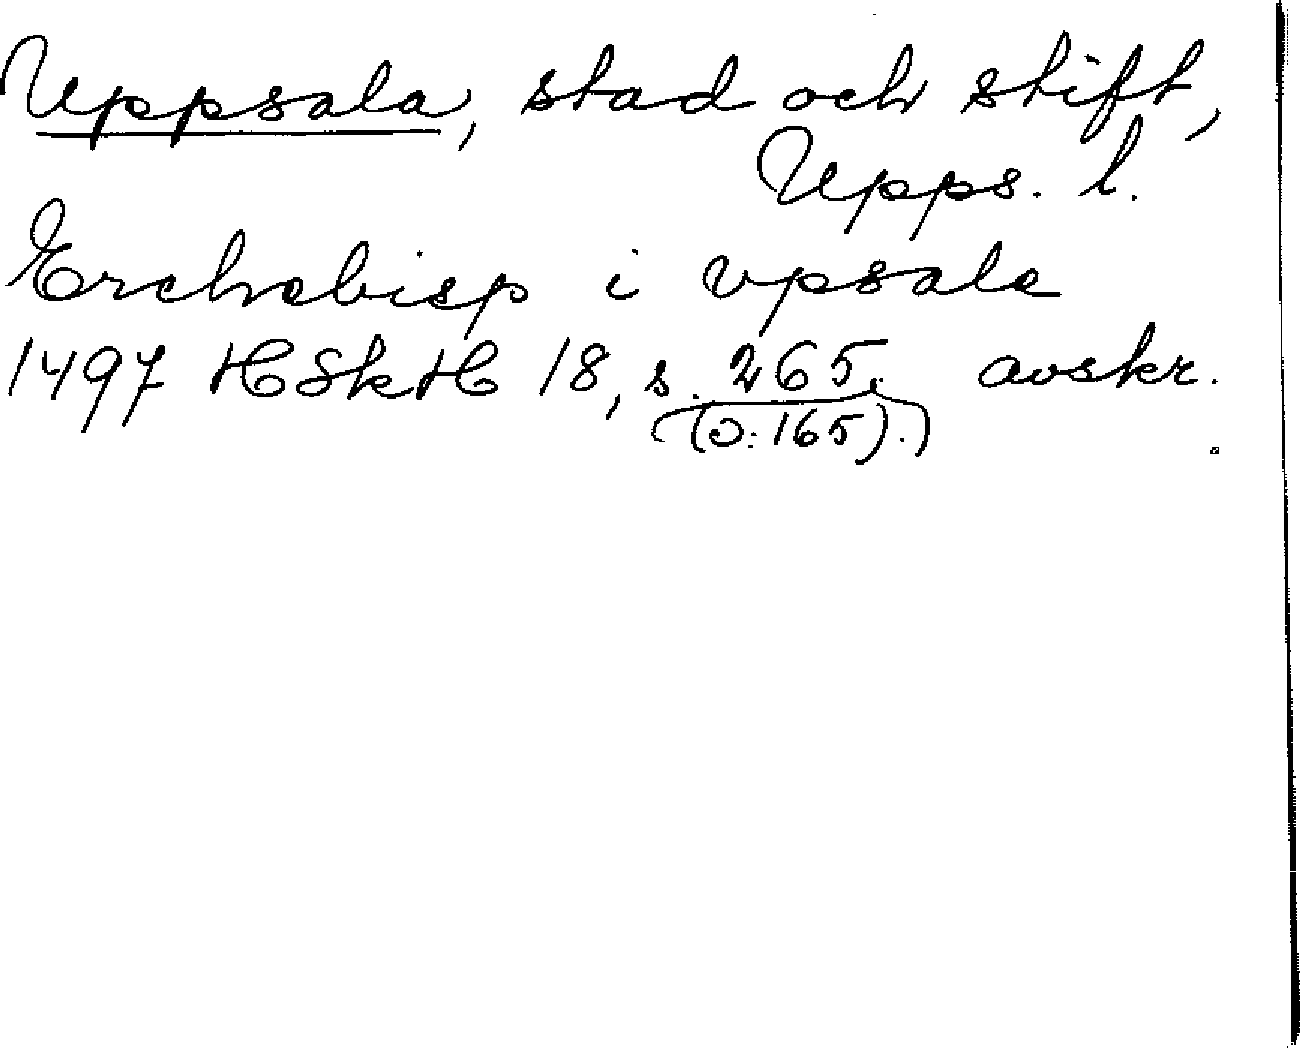 Uppsala, stad och stift,
Upps. l.
Erchebisp i vpsale
1497 HSkH 18, s. 265. avskr.
(ɔ: 165).)